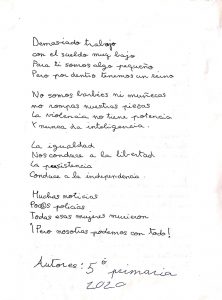 Demasiado trabajo
con el sueldo muy bajo
Para ti somos algo pequeño
Pero por dentro tenemos un reino
No somos barbies ni muñecas
no rompas nuestras piezas
La violencia no tiene potencia
Y nunca da inteligencia.
La igualdad
Nos conduce a la libertad
La persistencia
Conduce a la independencia
Muchas noticias
Pocos policías
Todas esas mujeres murieron
¡Pero nosotras podemos con todo!
Autores: 5º primaria
2020